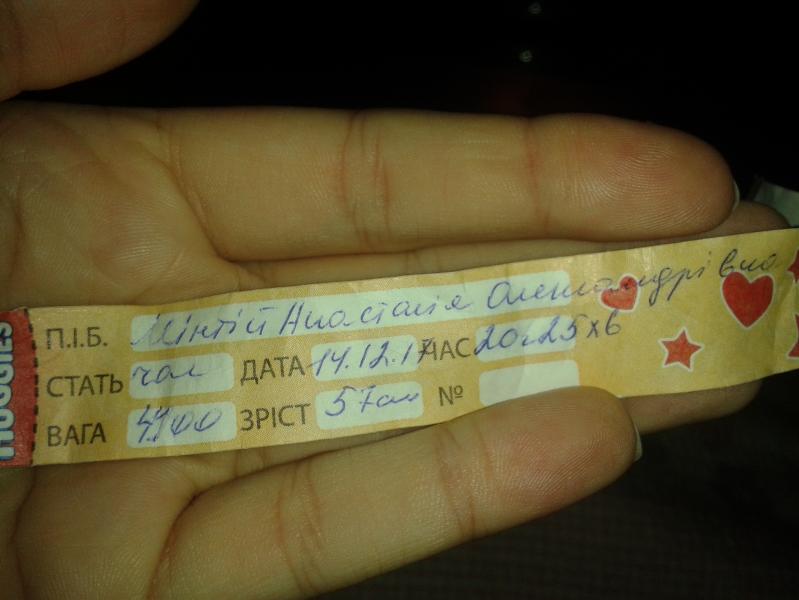 HUGGIES
П.І.Б. Мінтій Анастасія Олександрівна
СТАТЬ чол ДАТА 14.12.17 ЧАС 20г25хв
ВАГА 4400 ЗРІСТ 57см №